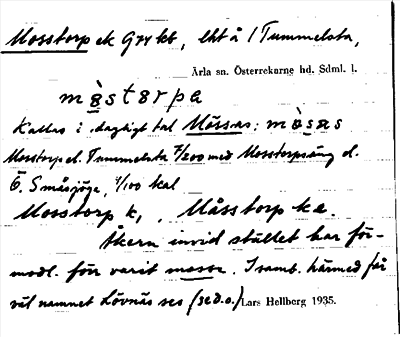 Mosstorp ek G74 kb, lht å 1 Tummelsta,
Ärla sn. Österrekarne hd. Sdml. l.
mòstorpa
Kallas i dagligt tal Måss-as: mòsas
Mosstorp el. Tummelsta 7/200 med Mosstorpsäng o.
Ö. Småsjöga, 7/100 kal
Mosstorp k, . Måsstorp ka.
Åkern invid stället har för-
modl. förr varit mosse. I samb. härmed får
väl namnet Lövnäs ses (se d.o.) Lars Hellberg 1935.